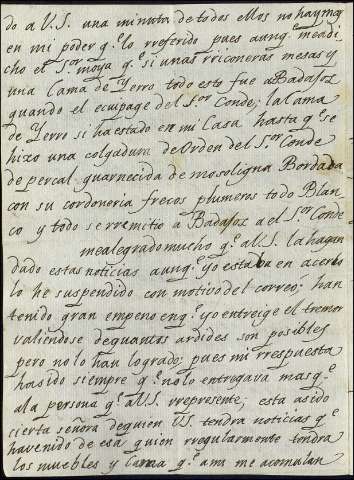 do a V.S. una minuta de todos ellos no hay mas
en mi poder q.e lo rreferido pues aunq.e me an di
cho el S.or moya q.e si unas rriconeras mesas y
una Cama de Yerro todo esto fue a Badajoz
quando el ecupage del S.or Conde; la Cama
de Yerro si ha estado en mi Casa hasta q.e se
hizo una colgadura de Orden del S.or Conde
de percal guarnecida de mosoligna Bordada
con su cordoneria frecos plumeros todo Blan
co y todo se rremitio a Badajoz a el S.or Conde
me alegrado mucho q.e a V.S. la hayan
dado estas noticias aunq.e yo estaba en acerlo
lo he suspendido con motivo del correo; han
tenido gran empeno en q.e yo entreige el tremor
valiendose de quantos ardides son posibles
pero no lo han logrado; pues mi rrespuesta
ha sido siempre q.e no lo entregava mas q.e
a la persona q.e a V.S. rrepresente; esta asido
cierta señora de quien V.S. tendra noticias q.e
ha venido de esa quien rregularmente tendra
los muebles y Cama q.e a mi me acomulan